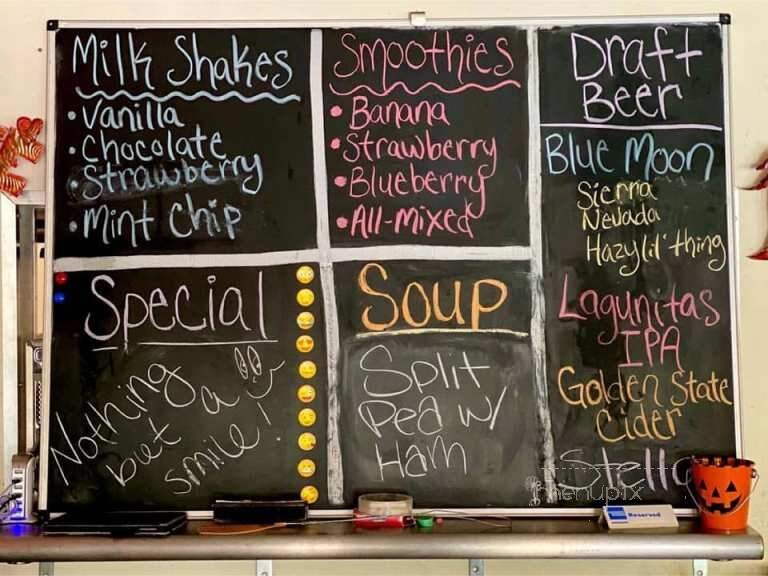 Milk Shakes
• Vanilla
• Chocolate
• Strawberry
• Mint Chip
Smoothies
• Banana
• Strawberry
• Blueberry
• All-Mixed
Draft
Beer
Blue Moon
Sierra
Nevada
Hazy lil' thing
Lagunitas
IPA
Golden State
Cider
Stella
Special
Nothing
but a
smile!
Soup
Split
Pea w/
Ham
menupix
Reserved